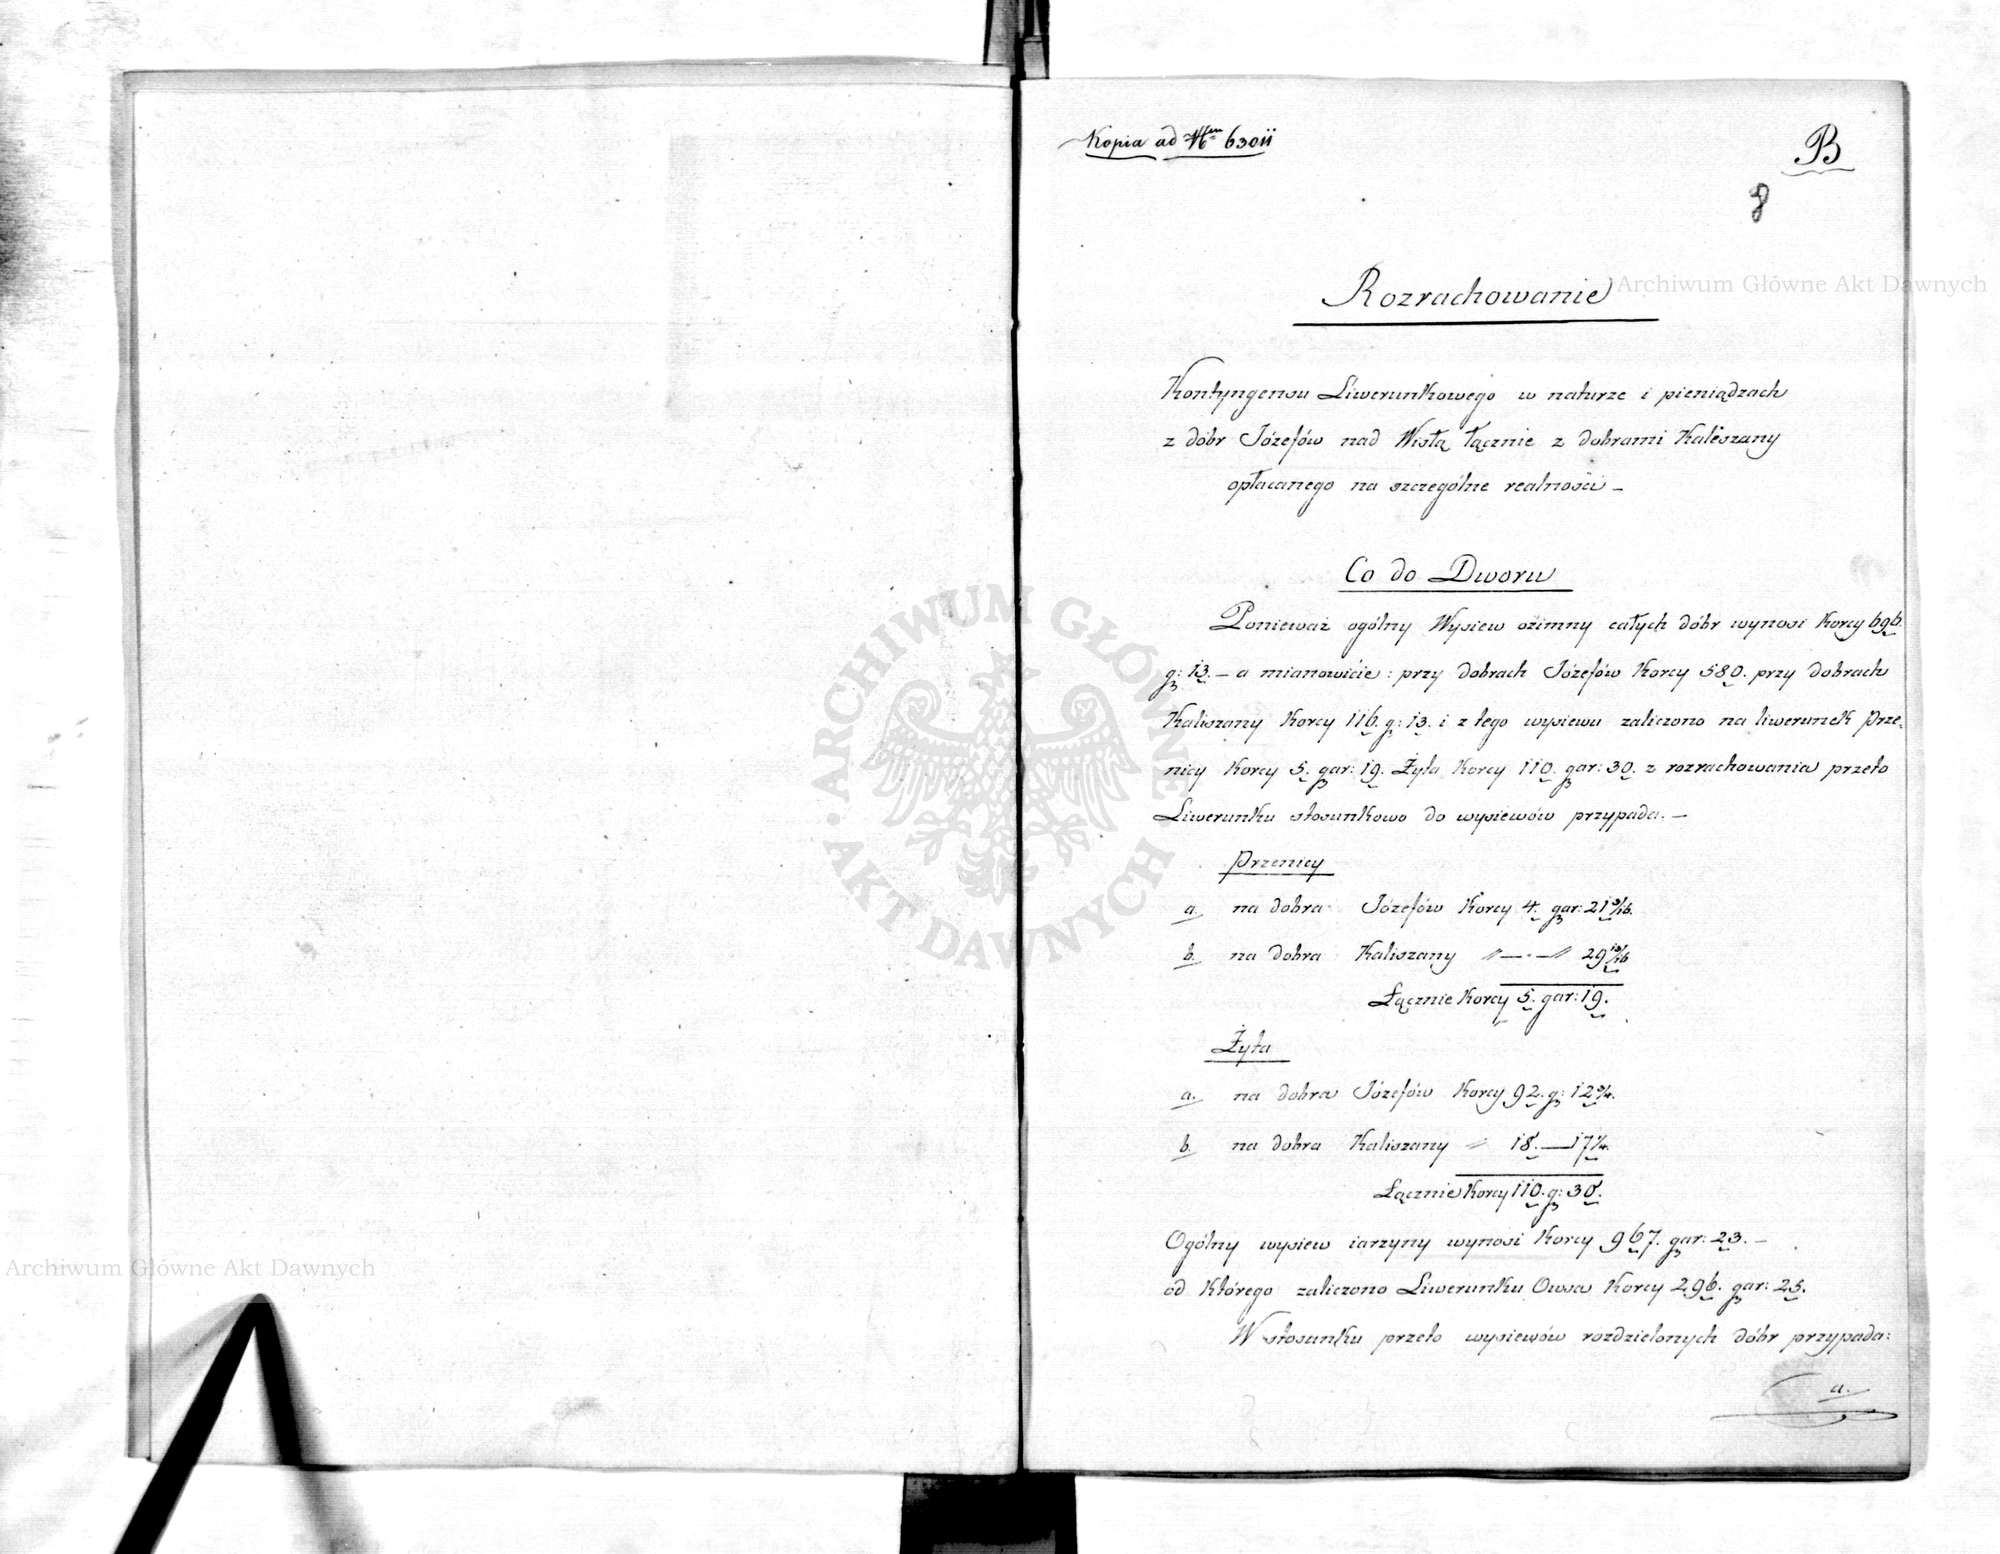 Kopia ad Nrm 63011
B
8
Rozrachowanie
Archiwum Główne Akt Dawnych
Kontyngensu Liwerunkowego w naturze i pieniądzach
z dóbr Józefów nad Wisłą łącznie z dobrami Kaliszany
opłacanego na szczególne realności –
Co do Dworu
Ponieważ ogólny Wysiew oźimny całych dóbr wynosi Korcy 696.
g: 13. – a mianowićie: przy dobrach Józefów Korcy 580. przy dobrach
Kaliszany Korcy 116. g: 13. i z tego wysiewu zaliczono na liwerunek Psze-
nicy Korcy 5. gar: 19. Żyta Korcy 110. gar: 30. z rozrachowania przeto
Liwerunku stosunkowo do wysiewów przypada. –
Pszenicy
a. na dobra Józefów Korcy 4. gar: 21 3/16.
b. na dobra Kaliszany " — . — " 29 13/16
Łącznie Korcy 5. gar: 19.
Żyta
a. na dobra Józefów Korcy 92. g: 12 3/4.
b. na dobra Kaliszany " 18. — 17 1/4.
Łącznie Korcy 110. g: 30.
Ogólny wysiew iarzyny wynosi Korcy 967. gar: 23. –
od którego zaliczono Liwerunku Owsa Korcy 296. gar: 25.
W stosunku przeto wysiewów rozdzielonych dóbr przypada:
a.
ARCHIWUM GŁÓWNE
AKT DAWNYCH
Archiwum Główne Akt Dawnych